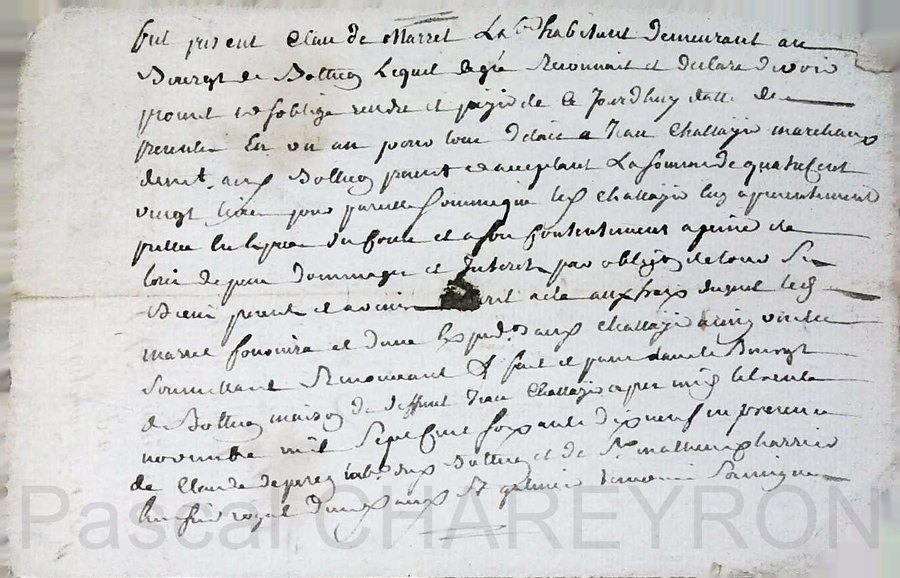 fut present Claude Marret Lab. habitant demeurant au
Bourgt de Bothéon Lequel de gré Reconnait et declare devoir
promet et soblige rendre et payer de ce Jourdhuy datte de
presentes En un an pour tout delais a Jean Chattagnie marchand
demt. aud Bothéon present et acceptant La somme de quatre cent
vingt livres pour pareille somme que led Chattagnie luy a presentement
preté et a son Contentement a peine de
tous depens Dommages et Interets par oblig de tous Ses
Biens present et avenir acte aux frais duquel led
Marret fournira et d'une aud Chattagnie ainsi
Soumettant Renonceant & fait et passé dans le Bourgt
de Bothéon maison de deffunt Jean Chattagnie apres midy le trente
novembre mil Sept Cent soixante dix neuf en presence
de Claude deperey hab. dud Bothéon et de Sr. mathieu
royal aud St galmier temoins Soussignes
Pascal CHAREYRON